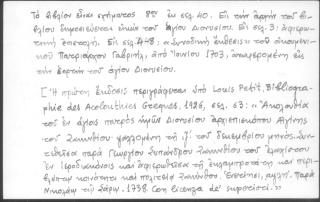 Τὸ βιβλίον εἶναι σχήματος 8ον ἐκ σελ. 40. Εἰς τὴν ἀρχὴν τοῦ βι-
βλίου δημοσιεύεται εἰκὼν τοῦ ἁγίου Διονυσίου. Εἰς σελ. 3: ἀφιερω-
τικὴ ἐπιστολή. Εἰς σελ. 4-8: «Συνοδικὴ ἔκθεσις» τοῦ οἰκουμενι-
κοῦ Πατριάρχου Γαβριήλ, ἀπὸ Ἰουνίου 1703, ἀναφερομένη εἰς
τὴν ἑορτὴν τοῦ ἁγίου Διονυσίου.
[Ἡ πρώτη ἔκδοσις περιγράφεται ὑπὸ Louis Petit, Bibliogra-
phie des Acolouthies Grecques, 1926, σελ. 63: «Ἀκολουθία
τοῦ ἐν ἁγίοις πατρὸς ἡμῶν Διονυσίου ἀρχιεπισκόπου Αἰγίνης
τοῦ Ζακυνθίου ψαλλομένη τῇ ιζ' τοῦ δεκεμβρίου μηνός. Συν-
τεθεῖσα παρὰ Γεωργίου Ζακυνθίου τοῦ
ἐν Ἱεροδιακόνοις καὶ ἀφιερωθεῖσα τῇ ἐκλαμπροτάτῃ καὶ περι-
κοινότητι καὶ πολιτείᾳ Ζακύνθου. Ἐνετίησι, αψλη'. Παρὰ
Νικολάῳ τῷ Σάρῳ. 1738. Con licenza de' superiori.»]